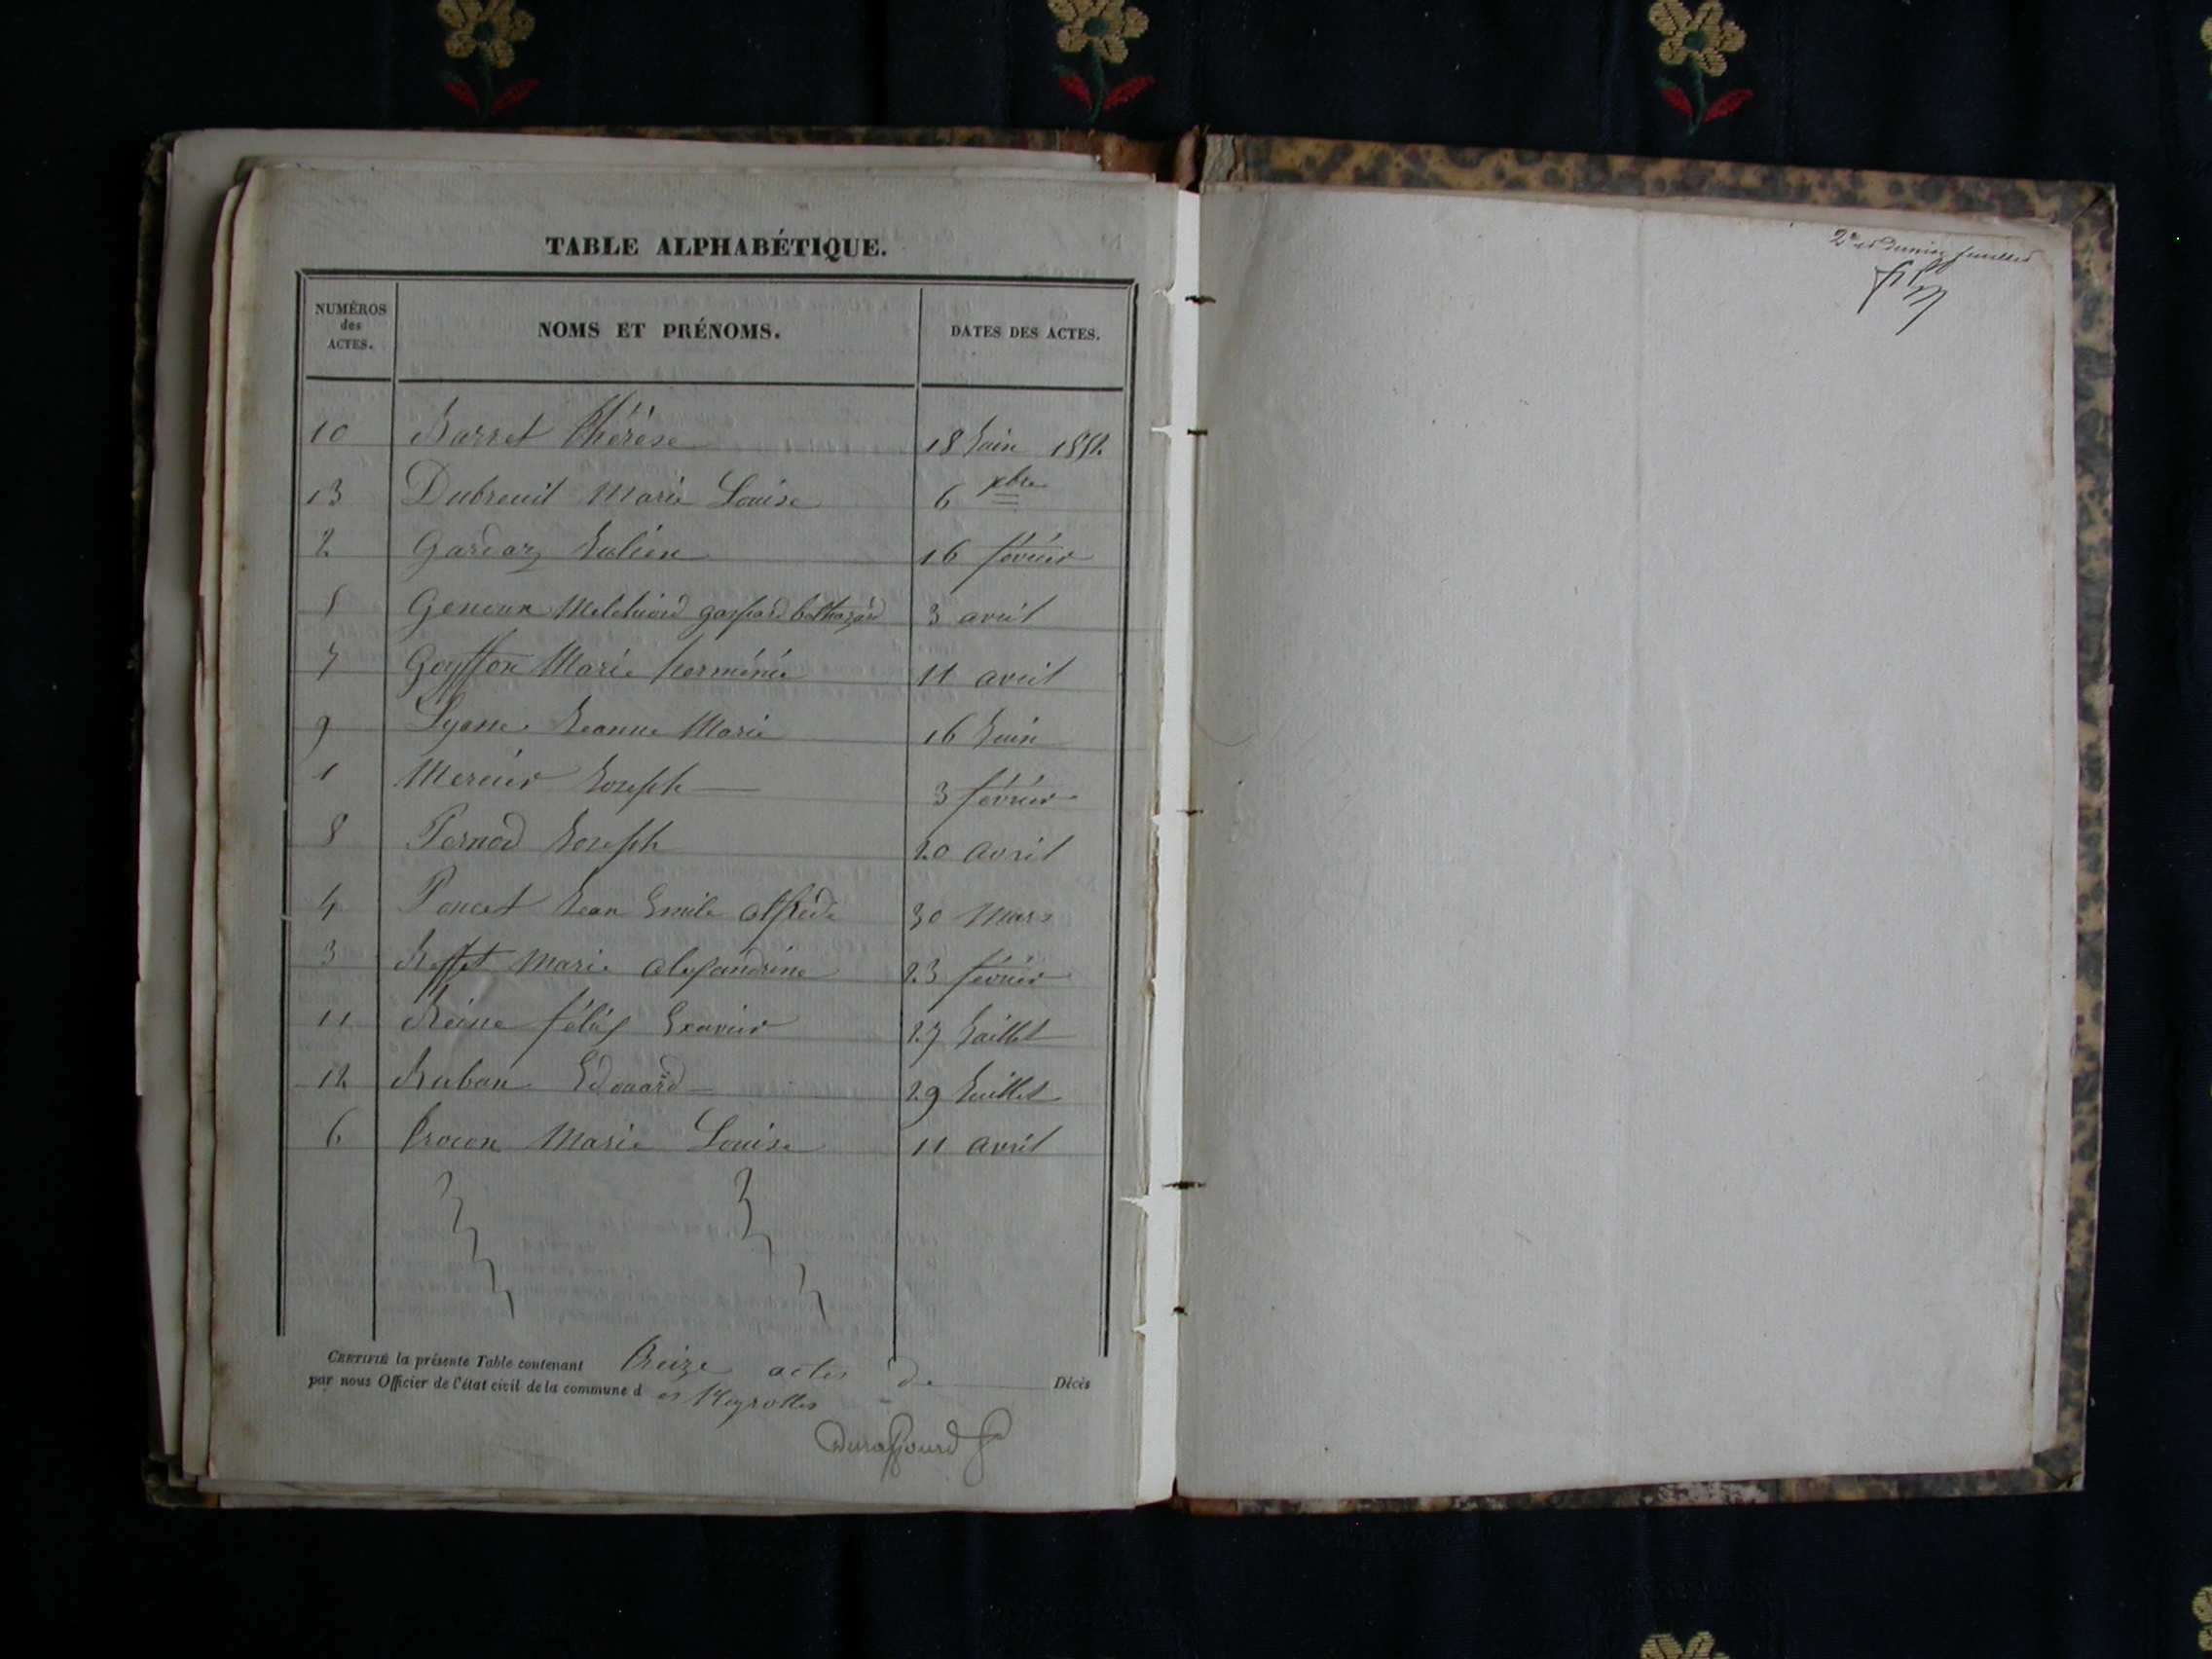 TABLE ALPHABÉTIQUE.
NUMÉROS des ACTES. NOMS ET PRÉNOMS. DATES DES ACTES.
10 Barret Thérèse 18 Juin 1852
13 Dubreuil Marie Louise 6 xbre
2 Gardaz Julien 16 février
5 Genoux Melchiord gaspard balthazard 3 avril
7 Goyffon Marie herminie 11 avril
9 Lyasse Jeanne Marie 16 Juin
1 Mercier Joseph 3 février
8 Pernod Joseph 20 avril
4 Poncet Jean Emile alfrede 30 Mars
3 Reffet Marie alexandrine 23 février
11 Reine félix Exavier 27 Juillet
12 Ruban Edouard 29 Juillet
6 Trocon Marie Louise 11 avril
CERTIFIÉ la présente Table contenant Treize actes de Décès
par nous Officier de l'état civil de la commune d es Neyrolles
Duraffourd
2e et dernier feuillet